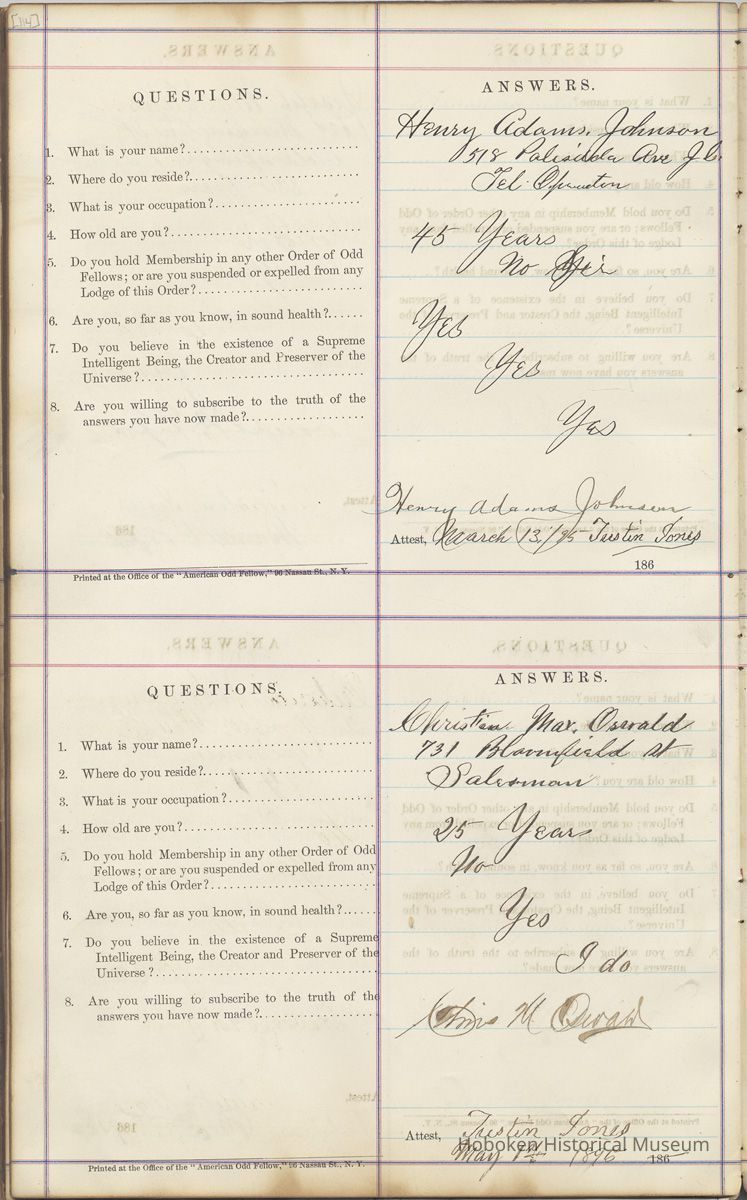 [114]
QUESTIONS.
1. What is your name?
2. Where do you reside?
3. What is your occupation?
4. How old are you?
5. Do you hold Membership in any other Order of Odd
Fellows; or are you suspended or expelled from any
Lodge of this Order?
6. Are you, so far as you know, in sound health?
7. Do you believe in the existence of a Supreme
Intelligent Being, the Creator and Preserver of the
Universe?
8. Are you willing to subscribe to the truth of the
answers you have now made?
Printed at the Office of the "American Odd Fellow," 96 Nassau St., N. Y.
ANSWERS.
Henry Adams. Johnson
518 Palisade Ave J.C.
Tel. Operator
45 Years
No Sir
Yes
Yes
Yes
Henry Adams Johnson
Attest, March 13./95 Jones
186
QUESTIONS.
1. What is your name?
2. Where do you reside?
3. What is your occupation?
4. How old are you?
5. Do you hold Membership in any other Order of Odd
Fellows; or are you suspended or expelled from any
Lodge of this Order?
6. Are you, so far as you know, in sound health?
7. Do you believe in the existence of a Supreme
Intelligent Being, the Creator and Preserver of the
Universe?
8. Are you willing to subscribe to the truth of the
answers you have now made?
Printed at the Office of the "American Odd Fellow," 96 Nassau St., N. Y.
ANSWERS.
Christian Max. Oswald
731 Bloomfield St
Salesman
25 Years
No
Yes
I do
Chris M Oswald
Attest, Jones
May 1896 186
Hoboken Historical Museum